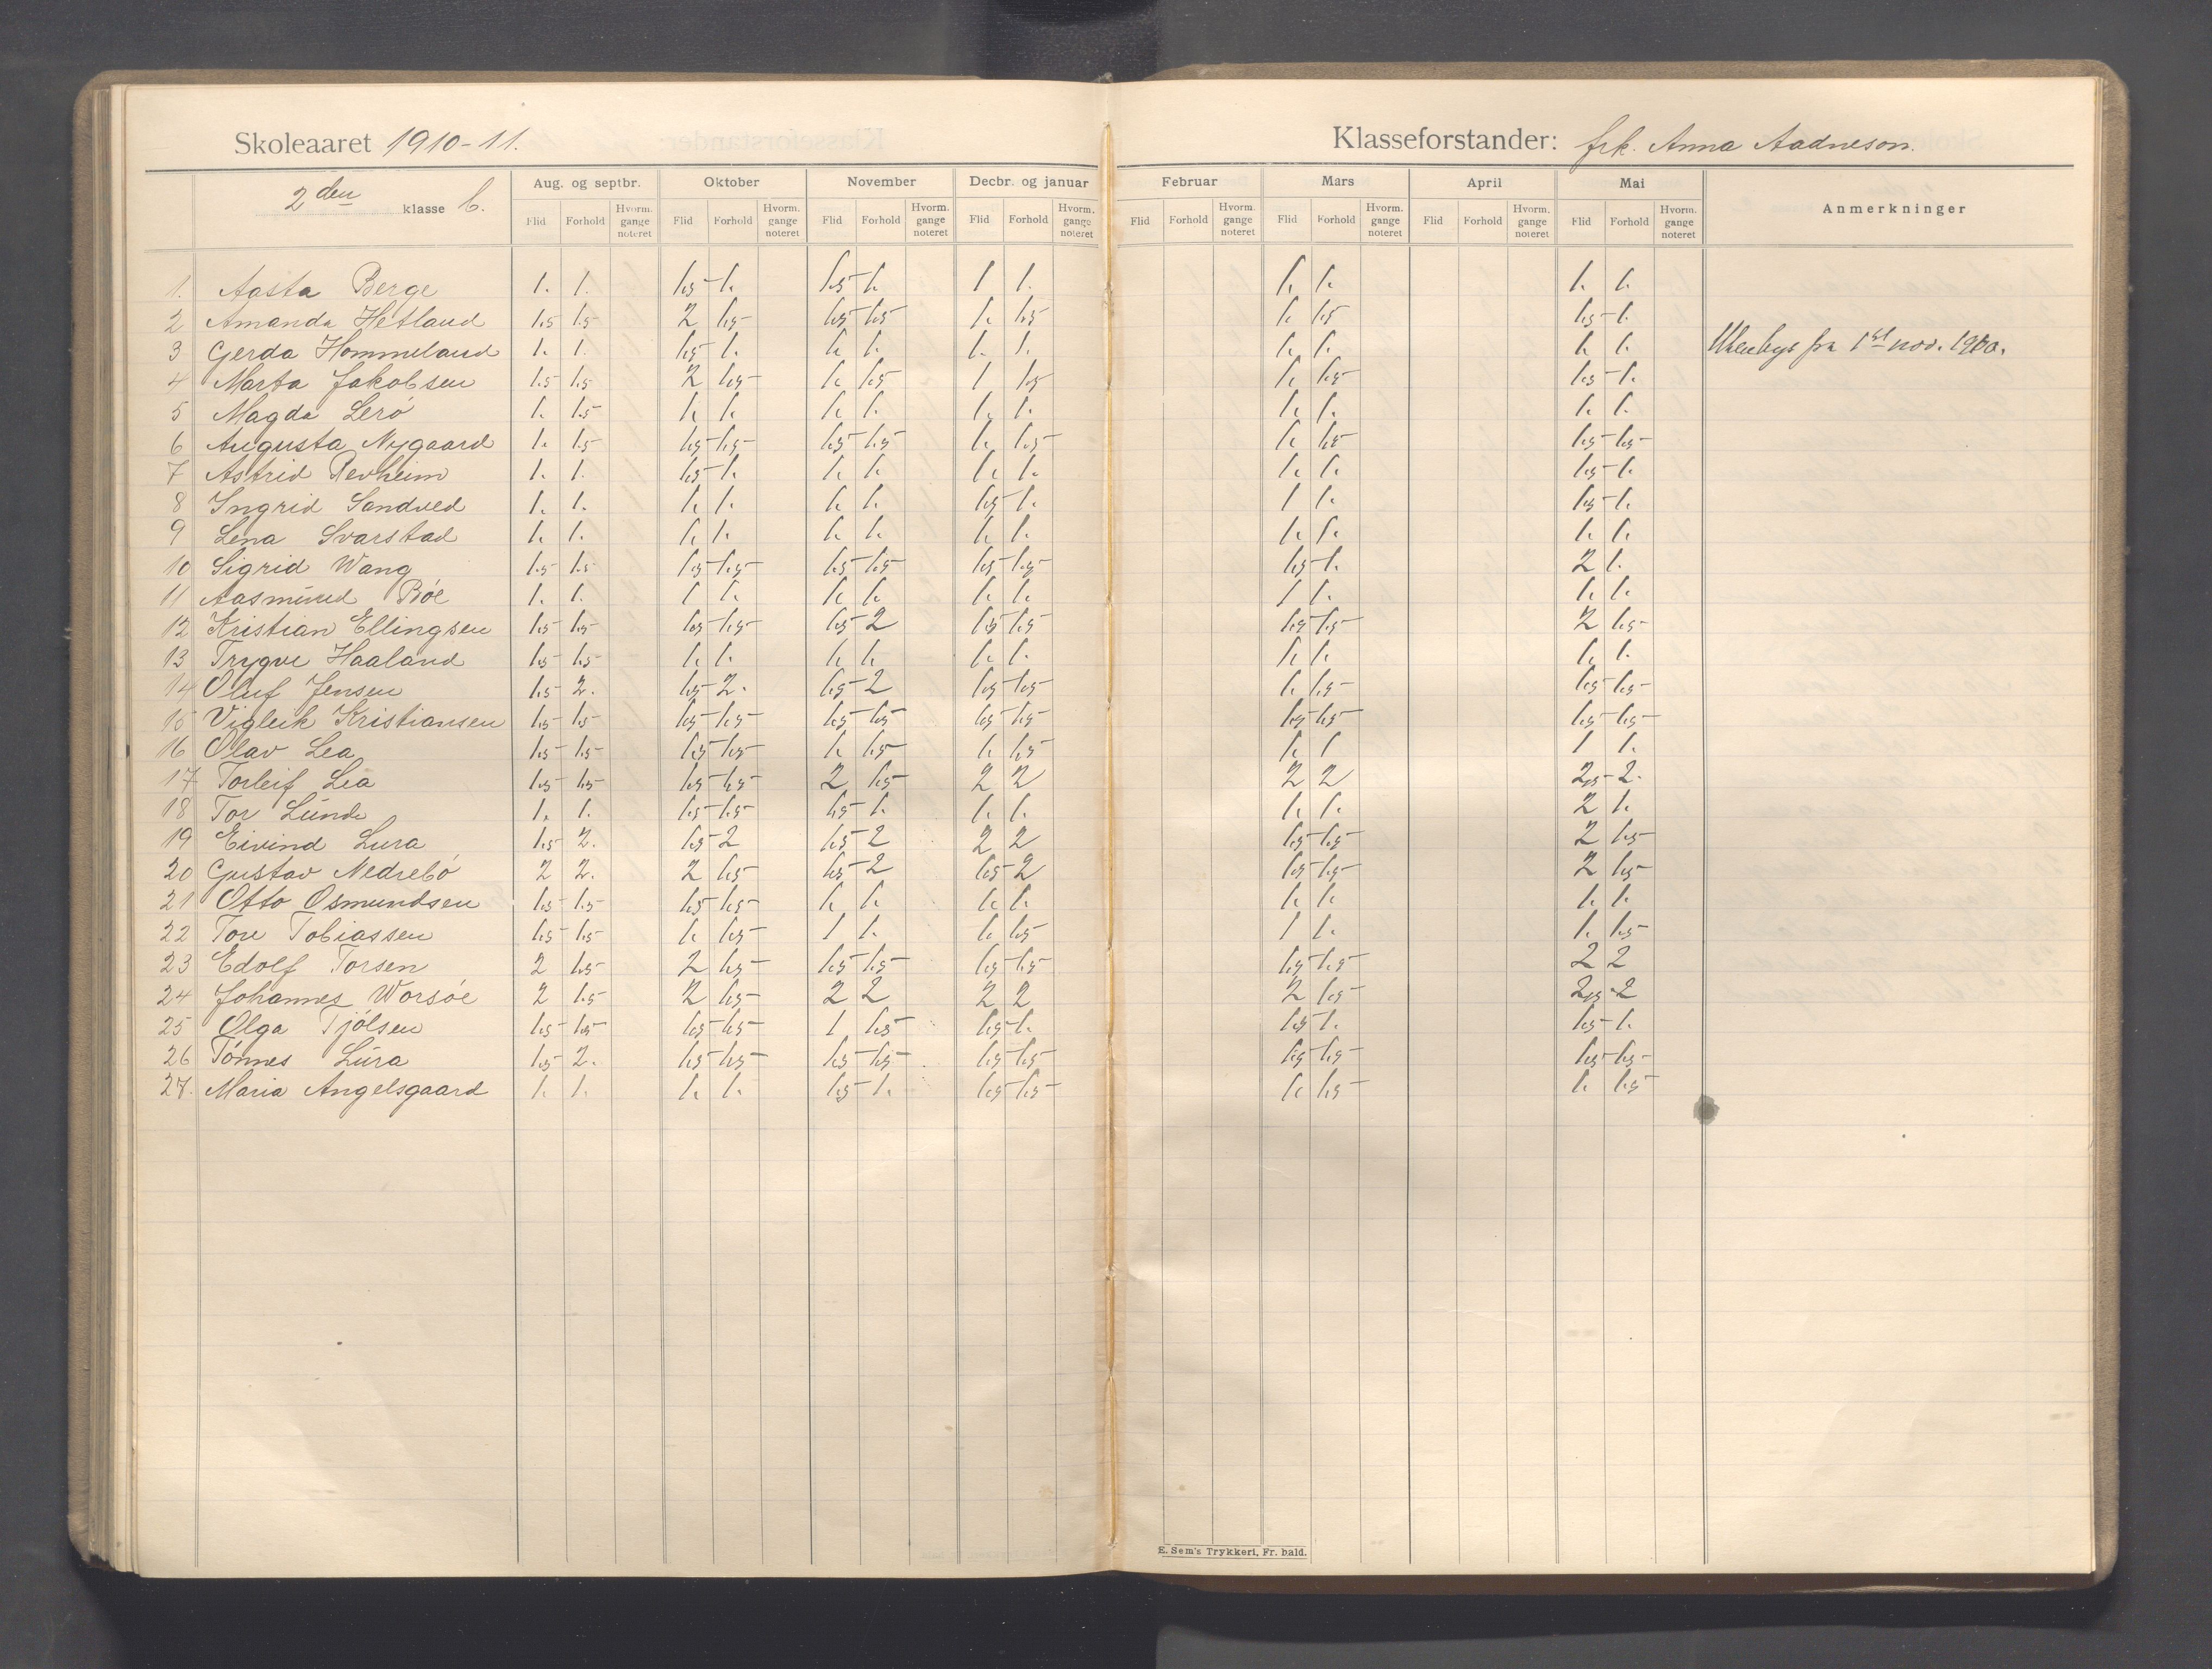 Skoleaaret 1910-11. Klasseforstander: frk. Anna Aadneson.
2den klasse b. Aug. og septbr. Oktober November Decbr. og januar Februar Mars April Mai Anmerkninger
Flid Forhold Hvorm. gange noteret Flid Forhold Hvorm. gange noteret Flid Forhold Hvorm. gange noteret Flid Forhold Hvorm. gange noteret Flid Forhold Hvorm. gange noteret Flid Forhold Hvorm. gange noteret Flid Forhold Hvorm. gange noteret Flid Forhold Hvorm. gange noteret
1. Aasta Berge 1. 1. 1.5 1. 1.5 1. 1 1. 1. 1. 1. 1.
2 Amanda Hetland 1.5 1.5 2 1.5 1.5 1.5 1. 1.5 1. 1.5 1.5 1.
3 Gerda Hommeland 1. 1. 1.5 1. 1. 1. 1. 1. 1. 1. 1. 1. fra 1st nov. 1910.
4 Marta Jakobsen 1.5 1.5 2 1.5 1. 1.5 1 1.5 1. 1.5 1.5 1.
5 Magda Lerö 1. 1.5 1. 1. 1. 1. 1. 1. 1. 1. 1. 1.
6 Augusta Nygaard 1. 1.5 1.5 1.5 1.5 1.5 1. 1.5 1. 1.5 1.5 1.5
7 Astrid Revheim 1. 1. 1.5 1. 1. 1. 1. 1. 1. 1. 1.5 1.
8 Ingrid Sandved 1. 1. 1. 1. 1. 1. 1.5 1. 1 1. 1.5 1.
9 Lena Svarstad 1. 1. 1. 1. 1. 1. 1. 1. 1. 1. 1. 1.
10 Sigrid Wang 1.5 1.5 1.5 1.5 1.5 1.5 1.5 1.5 1.5 1. 2 1.
11 Aasmund Böe 1. 1. 1 1. 1. 1. 1. 1. 1 1. 1. 1.
12 Kristian Ellingsen 1.5 1.5 1.5 1.5 1.5 2 1.5 1.5 1.5 1.5 2 1.5
13 Trygve Haaland 1.5 1.5 1. 1. 1. 1. 1. 1. 1. 1. 1. 1.
14 Oluf Jensen 1.5 2. 1.5 2. 1.5 2 1.5 1.5 1. 1.5 1.5 1.5
15 Vigleik Kristiansen 1.5 1.5 1.5 1.5 1.5 1.5 1.5 1.5 1.5 1.5 1.5 1.5
16 Olav Lea 1.5 1.5 1.5 1.5 1. 1.5 1. 1.5 1. 1 1 1.
17 Torleif Lea 1.5 1.5 1.5 1.5 2 1.5 2 2 2 2 2,5 2.
18 Tor Lunde 1. 1. 1.5 1.5 1.5 1. 1. 1. 1. 1. 2 1.
19 Eivind Lura 1.5 2. 1.5 2 1.5 2 2 2 1.5 1.5 2 1.5
20 Gustav Nedrebö 2 2. 2 1.5 1.5 2 1.5 2 1.5 1.5 2 1.5
21 Otto Osmundsen 1.5 1.5 1.5 1.5 1. 1. 1. 1. 1. 1. 1. 1.
22 Tore Tobiassen 1.5 1.5 1. 1.5 1 1. 1. 1.5 1 1. 1. 1.5
23 Edolf Torsen 2 1.5 2 1.5 1.5 1.5 1.5 1.5 1.5 1.5 2 2
24 Johannes Worsöe 2 1.5 2 1.5 2 2 2 2 2 1.5 2,5 2
25 Olga Tjölsen 1.5 1.5 1.5 1.5 1 1.5 1.5 1. 1.5 1. 1.5 1.
26 Tönnes Lura 1.5 2. 1.5 1.5 1.5 1.5 1.5 1.5 1.5 1.5 1.5 1.5
27. Maria Angelsgaard 1. 1. 1. 1. 1.5 1. 1.5 1.5 1. 1.5 1. 1.5
E. Sem's Trykkeri, Fr. hald.